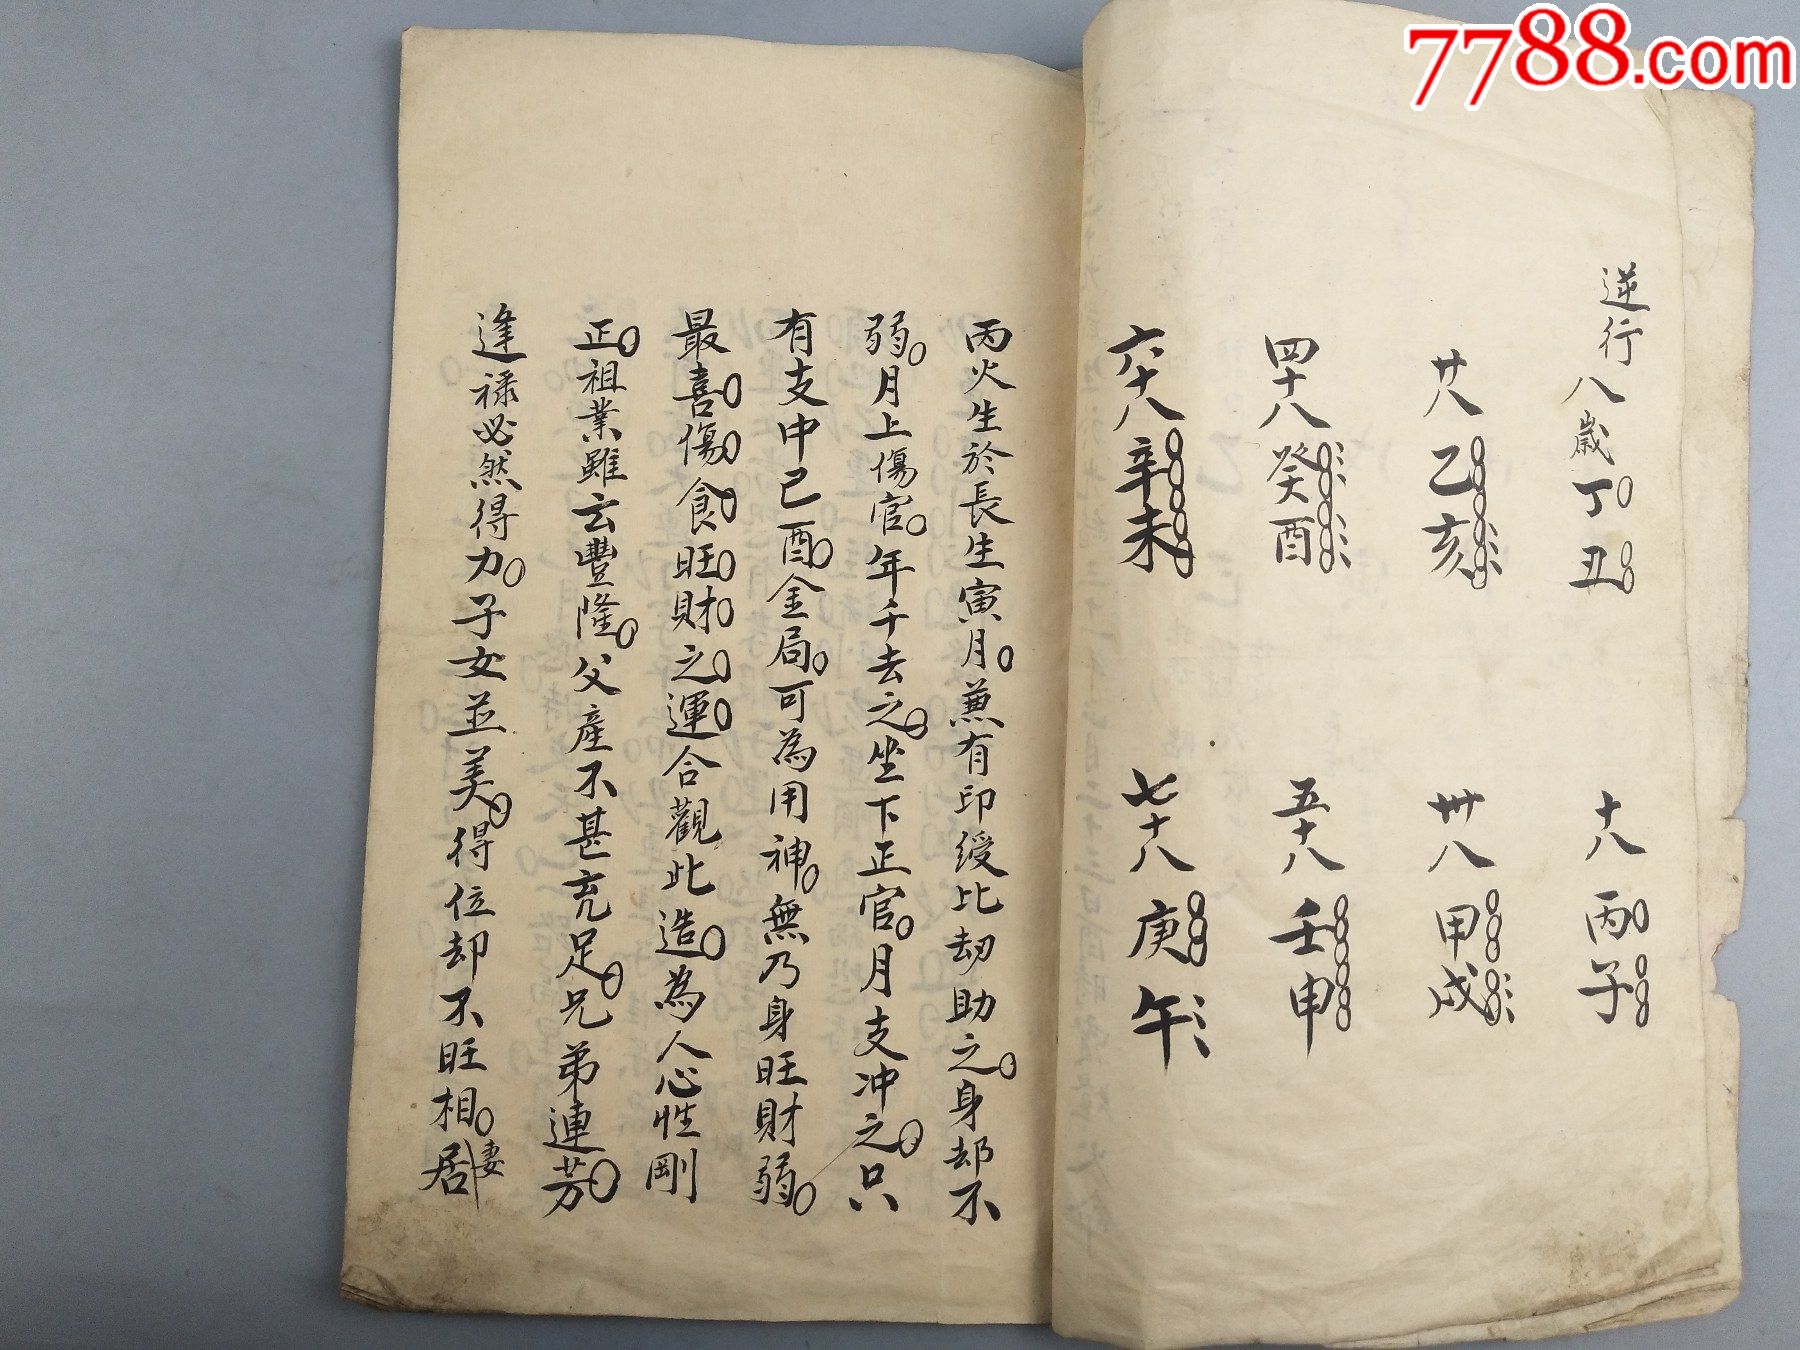 7788.com
逆行八歲丁丑
十八丙子
廿八乙亥
卅八甲戌
四十八癸酉
五十八壬申
六十八辛未
七十八庚午
丙火生於長生寅月兼有印綬比劫助之身却不
弱月上傷官年干去之坐下正官月支冲之只
有支中巳酉金局可為用神無乃身旺財弱
最喜傷食旺財之運合觀此造為人心性剛
正祖業雖云豐隆父產不甚充足兄弟連芳
逢祿必然得力子女並美得位却不旺相妻居